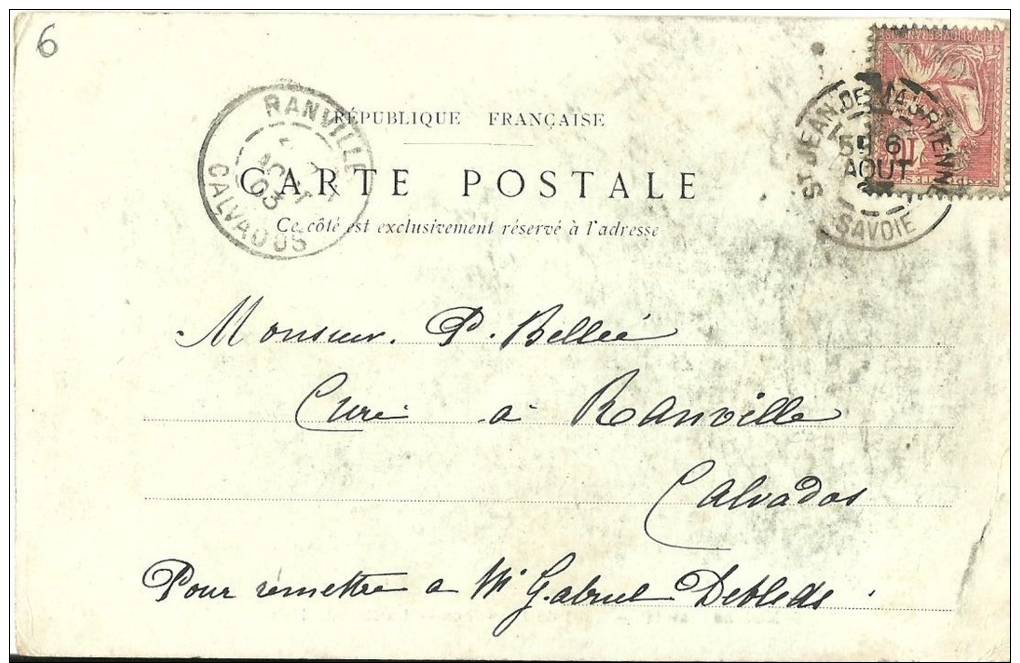 6
RANVILLE
AOUT
03
CALVADOS
RÉPUBLIQUE FRANÇAISE
CARTE POSTALE
Ce côté est exclusivement réservé à l'adresse
ST JEAN-DE-MAURIENNE
5E 6
AOUT
SAVOIE
10
Monsieur. P. Bellée
Curé à Ranville
Calvados
Pour remettre a Mr Gabriel Debleds